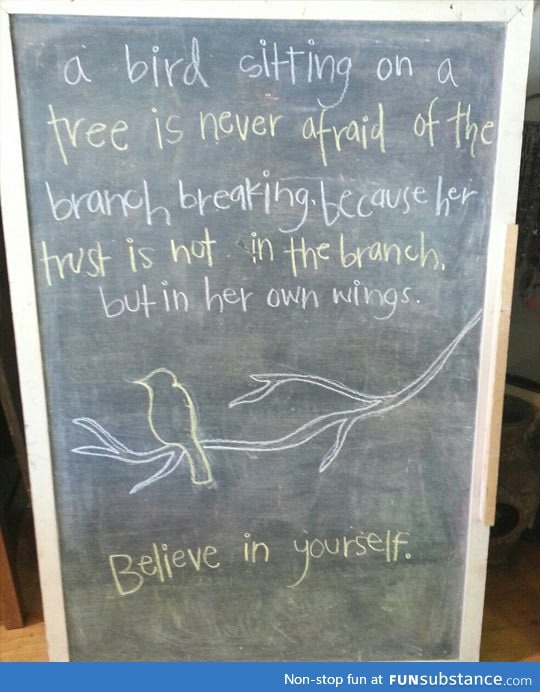 a bird sitting on a
tree is never afraid of the
branch breaking, because her
trust is not in the branch,
but in her own wings.
Believe in yourself.
Non-stop fun at FUNsubstance.com